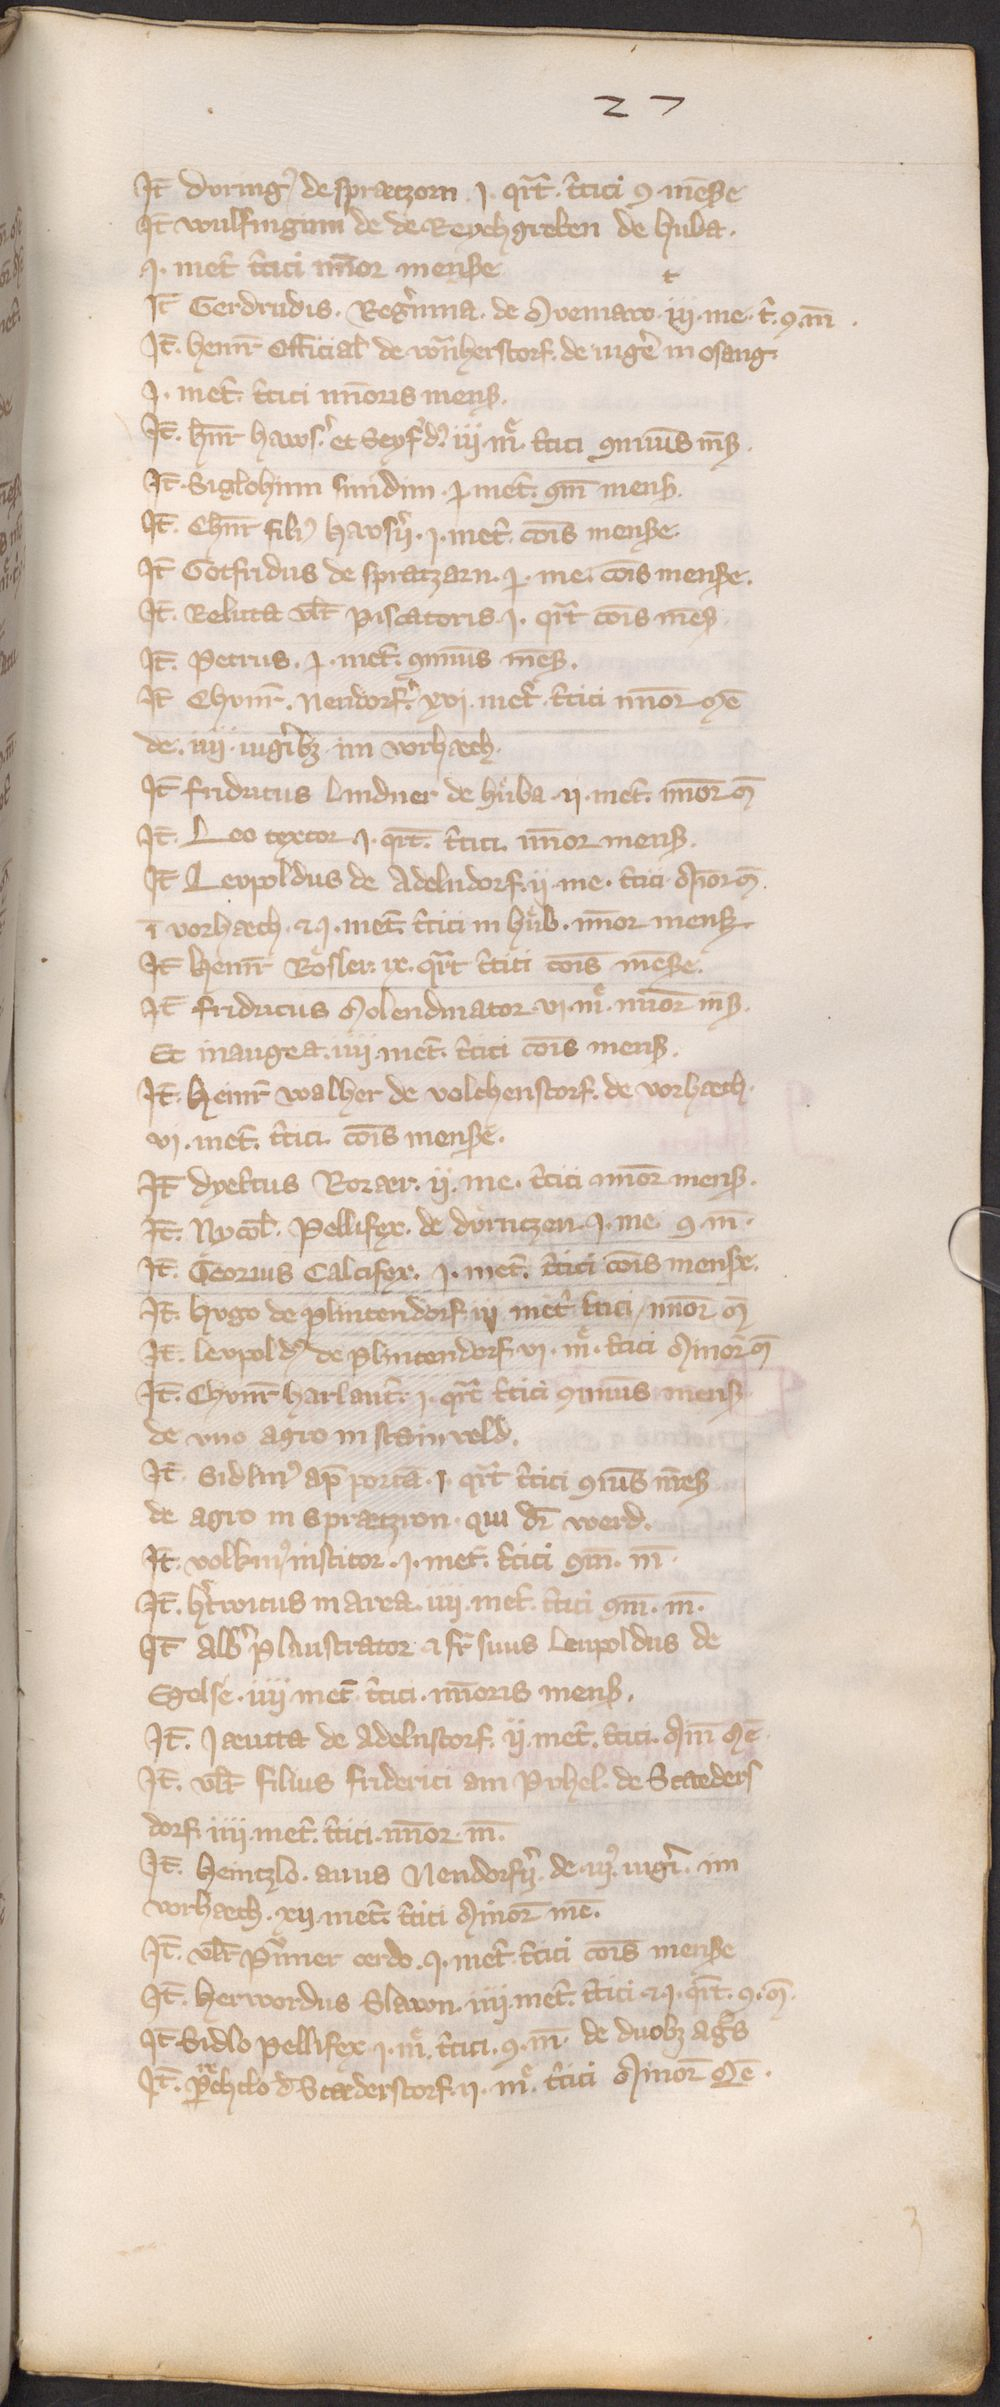 27
It̄ during᷒ de sprætzorn · j · qr̄t · t̄tici 9 · mēse
It̄ wulfingum de de Reychgreben de huba ·
j · met̄ t̄tici mīor mense
It̄ Gerdrudis · Reg'mma · de iij · me · t̄ · 9 · m̄ ·
It̄ · heinr̄ Official̄ de de iug'e in osang ·
j · met̄ · t̄tici mīoris mens ·
It̄ · hn̄r haws'̄ et Seyf'd' iij · m̄ · t̄tici 9muīs mēs ·
It̄ · Siglohum smidim · j · met̄ · 9m̄ mens ·
It̄ · Chn̄r fili᷒ hawsīj · j · met̄ · cōis mense ·
It̄ Gotfridus de spratzarn · j · me · cōis mense ·
It̄ · Reluta vlr̄ piscatoris · j · qr̄t cōis mēs
It̄ · Petrus · j · met̄ · 9muīs mēs ·
It̄ Chunr̄ · Nendorf'̄ xvj · met̄ · t̄tici mīor Mē
de · iiij · iug'ibꝫ im vorhæch ·
It̄ fridricus Lindner de hůba · ij · met̄ · mīor M̄
It̄ · Leo textor j · qr̄t · t̄tici · mīor mens ·
It̄ Levpoldus de Adelndorf · ij · me · t̄tici Mīor M̄
ī vorhæch · ⁊ j · met̄ · t̄tici in hůb · mīor mens
It̄ heinr̄ Rösler · ix · qr̄t t̄tici cōis mēse ·
It̄ fridricus Molendinator · vj · m̄ · mīor mēs ·
Et inaugea · iiij · met̄ · t̄tici cōis mens ·
It̄ · heinr̄ walher de volchenstorf · de vorhæch ·
vj · met̄ · t̄tici · cōis mense ·
It̄ dyeltus Rorær · ij · me · t̄tici mīor mens ·
It̄ · Nycol̄ · Pellifex · de dörntzen · j · me 9 · m̄ ·
It̄ · Georius Calcifex · j · met̄ · t̄tici cōis mense ·
It̄ · hugo de plintendorf iij met̄ t̄tici / mīor M̄
It̄ · levpold' de plintendorf · vj · m̄ · t̄tici Minor M̄
It̄ · Chunr̄ harlant'̄ · j · qr̄t t̄tici 9muīs mens
de vno agro in stainveld ·
It̄ · Sidlin᷒ ap̄ portā · j · qr̄t t̄tici 9iūs mēs
de agro in sprætzron · qui dr̄ werd ·
It̄ · volkm᷒ institor · j · met̄ · t̄tici 9m̄ · m̄ ·
It̄ · h'twicus in area · iiij · met̄ · t̄tici 9m̄ · m̄ ·
It̄ alb'̄ plaustrator ⁊ fr̄ suus Leupoldus de
Egelse · iiij met̄ · t̄tici · mīoris mens ·
It̄ · Jæutta de Adelnstorf · ij · met̄ · t̄tici · Mīn Mē ·
It̄ · vlr̄ filius friderici am Pvhel · de Stæders
dorf · iiij · met̄ · t̄tici · mīor · m̄ ·
It̄ · heintzlo · auus Nendorf'ij · de · iij᷒ · iug'i · im
vorhæch · xij · met̄ · t̄tici Minor mē ·
It̄ · vlr̄ cerdo · j · met̄ · t̄tici cōis mense
It̄ · herwordus Slawn · iiij · met̄ · t̄tici · ⁊ j · qr̄t · 9 · M̄ ·
It̄ Sidlo pellifex · j · m̄ · t̄tici · 9 · m̄ · de duobꝫ ag̃s
It̄ · d̄ Stæderstorf · ij · m̄ · t̄tici Minor Mē ·